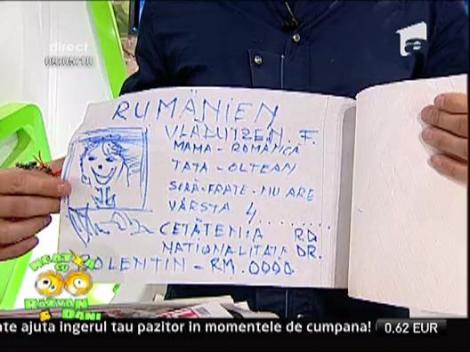 direct
RUMÄNIEN
VLADUTZEN. F.
MAMA - ROMÂNCĂ
TATA - OLTEAN
SORĂ-FRATE - NU ARE
VÂRSTA 4.......
CETĂTENIA RO
NATIONALITATE DR.
OLENTIN - RM. 0000
NEATZA
CU
RĂZVAN
& DANI
ate ajuta ingerul tau pazitor in momentele de cumpana!
0.62 EUR